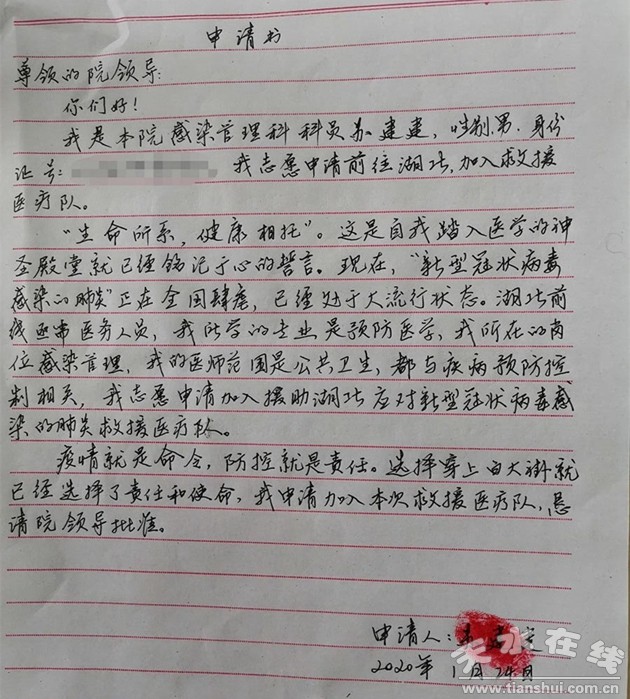 申请书
尊领的院领导:
你们好!
我是本院感染管理科科员苏建建，性别:男.身份
证号: 我志愿申请前往湖北,加入救援
医疗队。
“生命所系，健康相托”。这是自我踏入医学的神
圣殿堂就已经铭记于心的誓言。现在，“新型冠状病毒
感染的肺炎”正在全国肆虐，已经处于大流行状态。湖北前
线亟需医务人员，我所学的专业是预防医学，我所在的岗
位感染管理，我的医师范围是公共卫生，都与疾病预防控
制相关，我志愿申请加入援助湖北应对新型冠状病毒感
染的肺炎救援医疗队。
疫情就是命令，防控就是责任。选择穿上白大褂就
已经选择了责任和使命，我申请加入本次救援医疗队，恳
请院领导批准。
申请人:
2020年1月24日
天水在线
www.tianshui.com.cn